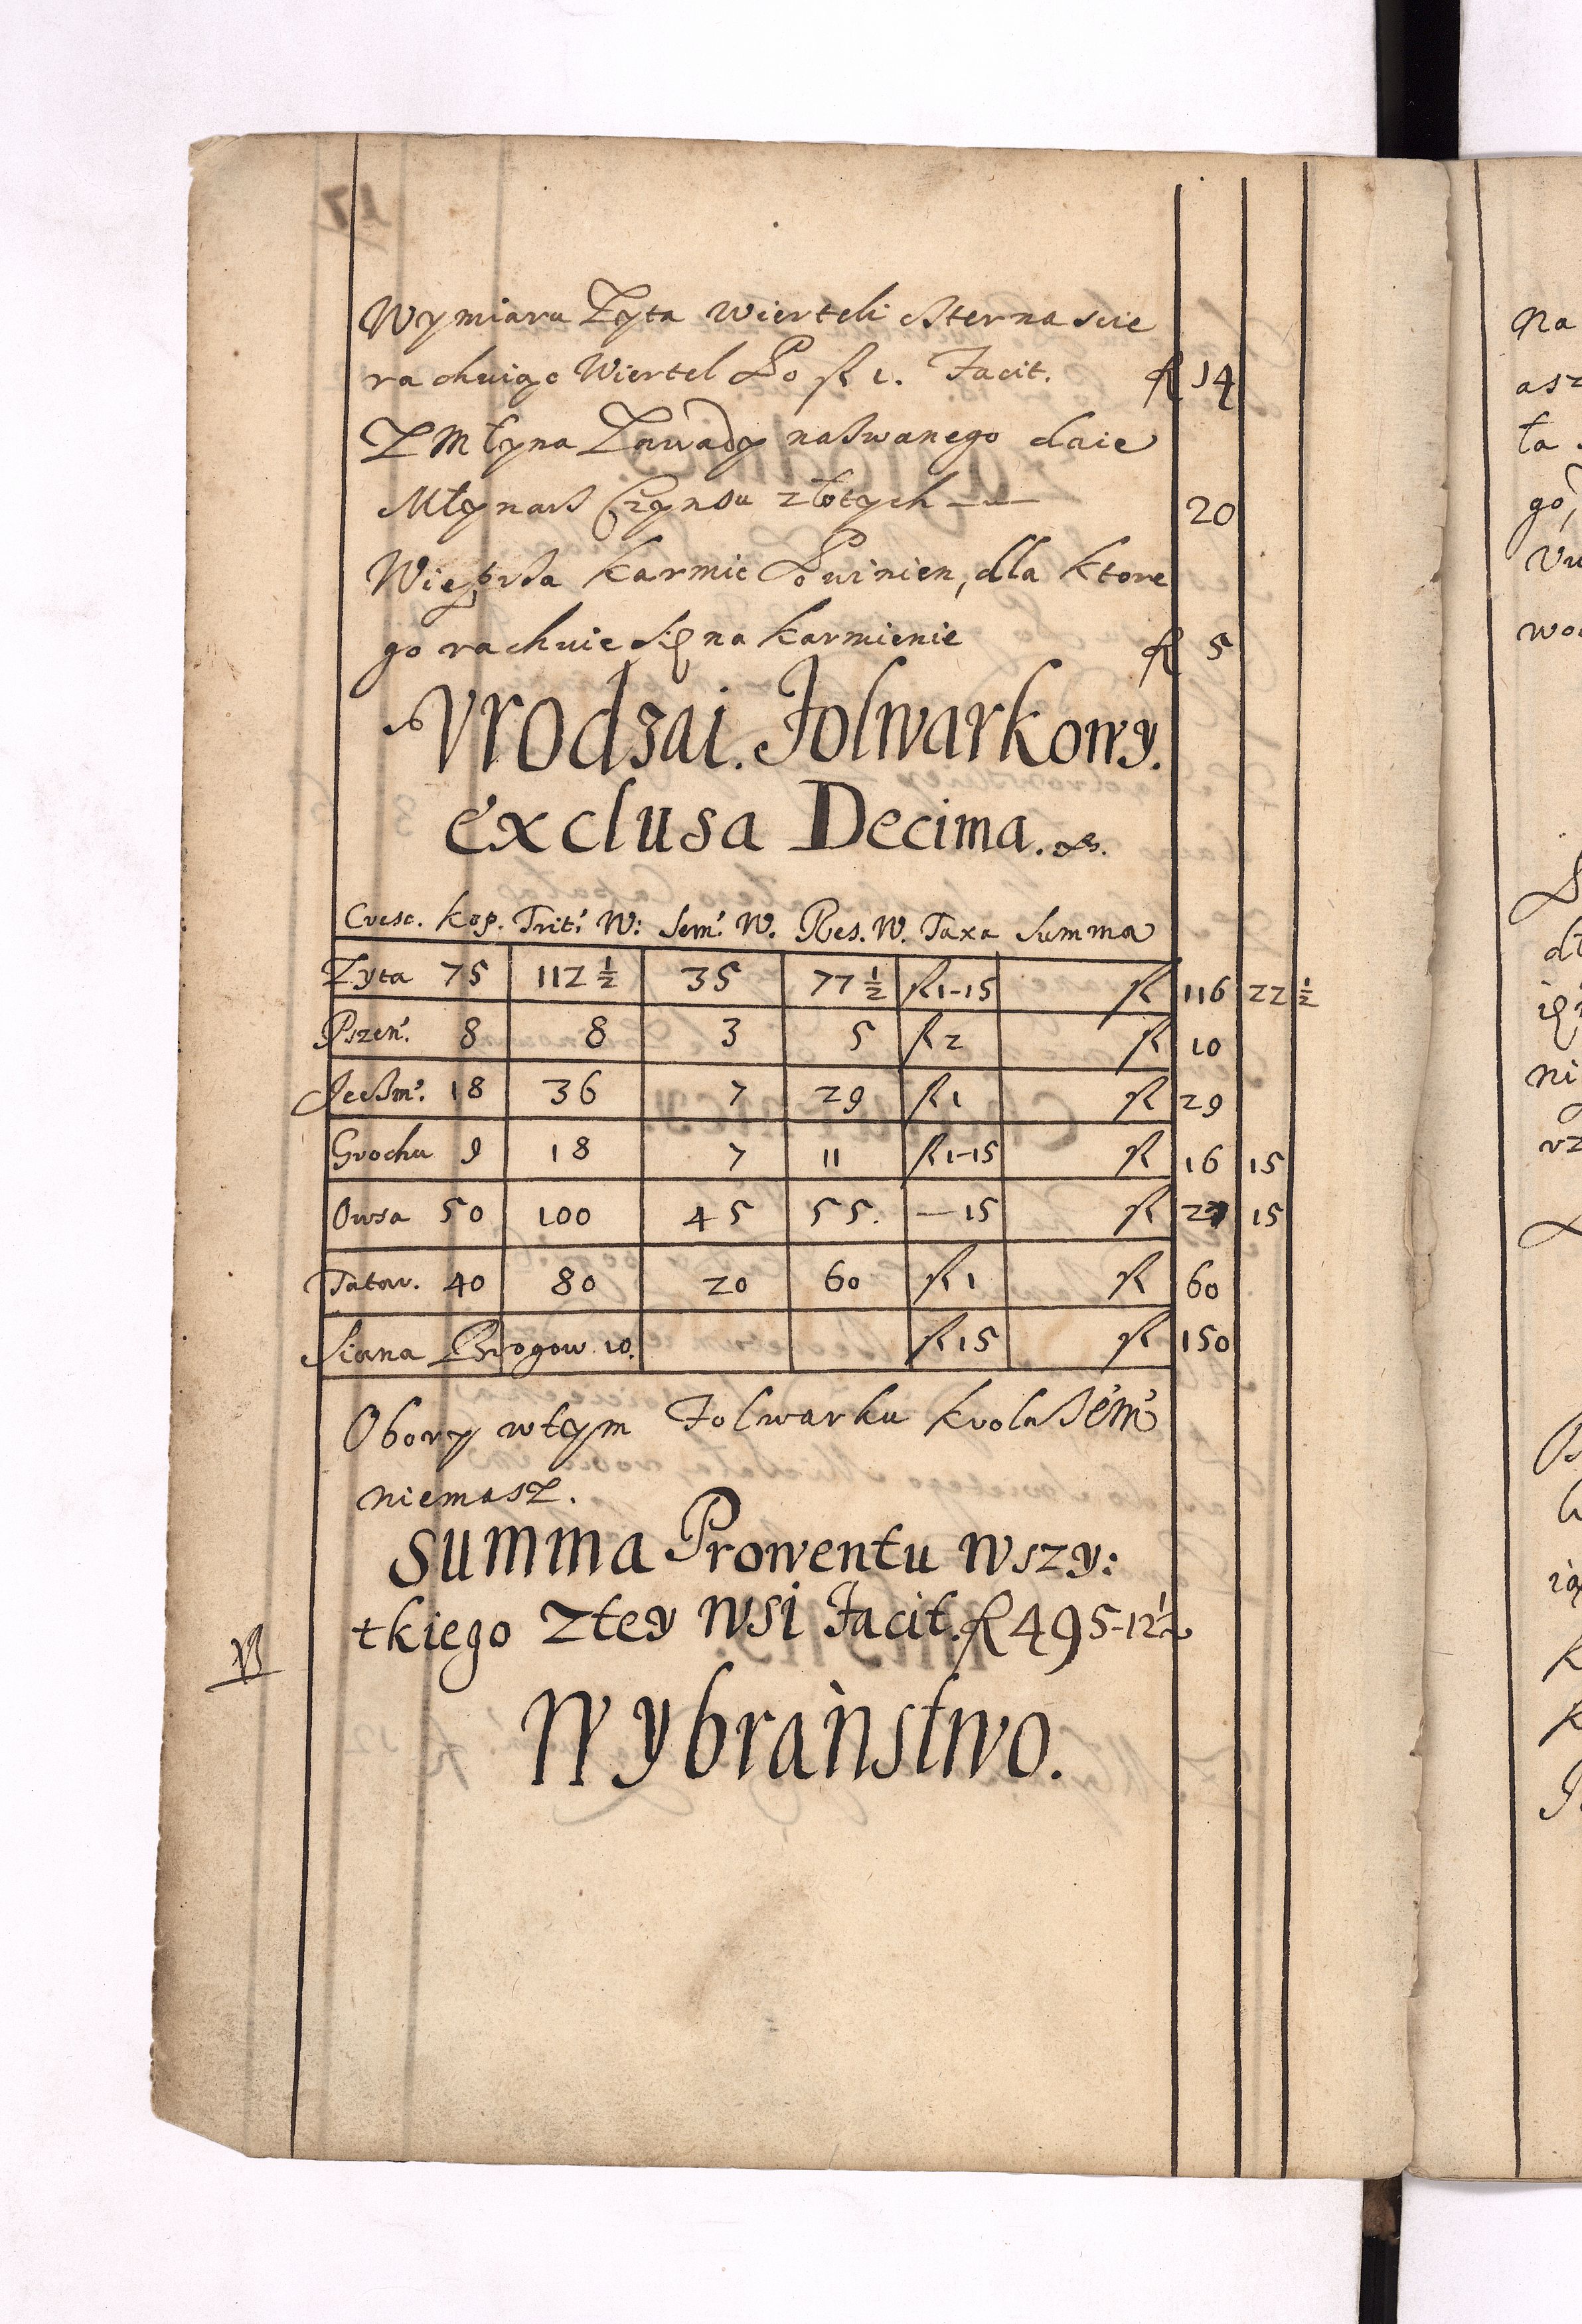 Wymiaru Zyta wierteli czternascie
rachuiąc Wiertel Po fl 1. Facit. fl 14
Z Młyna Zawady nazwanego daie
Młynarz Czynszu złotych — 20
Wieprza karmic Powinien, dla ktore
go rachuie się na karmienie fl 5
Vrodzai Folwarkowy.
exclusa Decima.
Cresc. kop. Trit: W: Sem: W. Res. W. Taxa Summa
Zyta 75 112 ½ 35 77 ½ fl 1-15 fl 116 22 ½
Pszen: 8 8 3 5 fl 2 fl 10
Jeczm: 18 36 7 29 fl 1 fl 29
Grochu 9 18 7 11 fl 1-15 fl 16 15
Owsa 50 100 45 55. — 15 fl 27 15
Tatar. 40 80 20 60 fl 1 fl 60
Siana Brogow 10. fl 15 fl 150
Obory w tym Folwarku
niemasz.
Summa Prowentu wszy:
tkiego z tey wsi Facit. fl 495-12½
Wybraństwo.
na